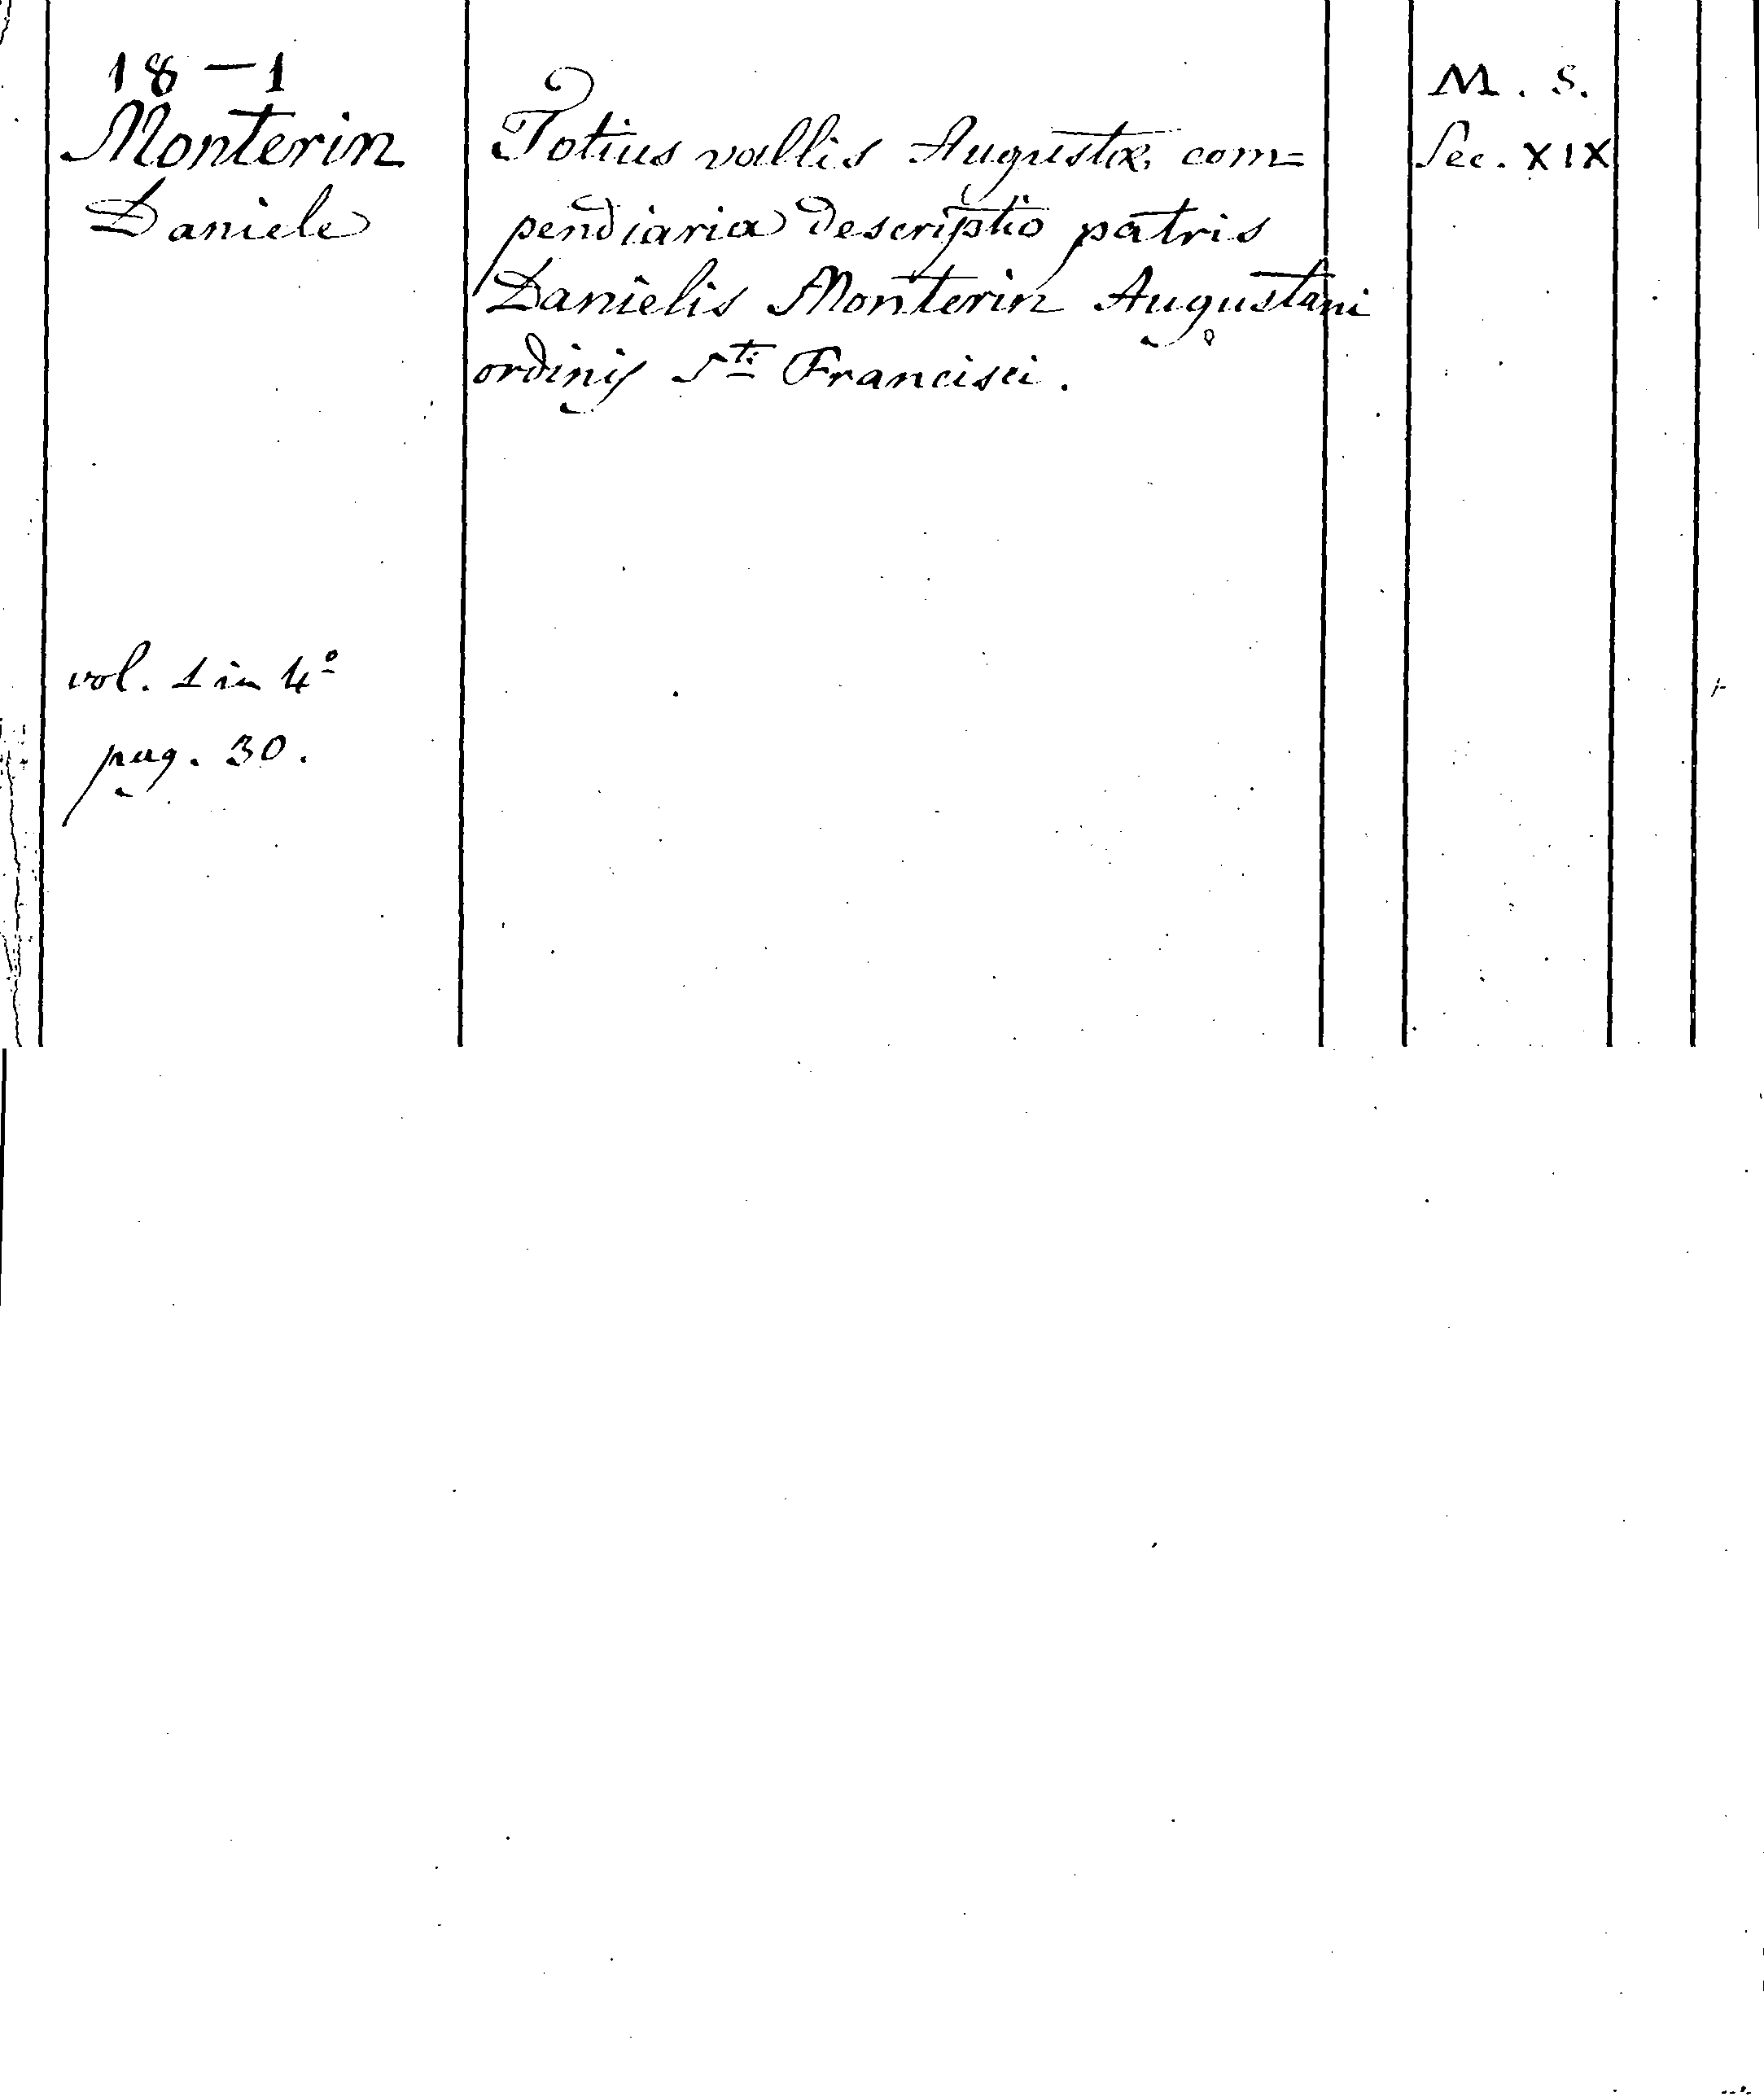 18 — 1
Monterin
Daniele
vol. 1 in 4º
pag. 30.
Totius vallis Augustæ com=
pendiaria descriptio patris
Danielis Monterin Augustani
ordinis Sti Francisci.
M. S.
Sec. XIX